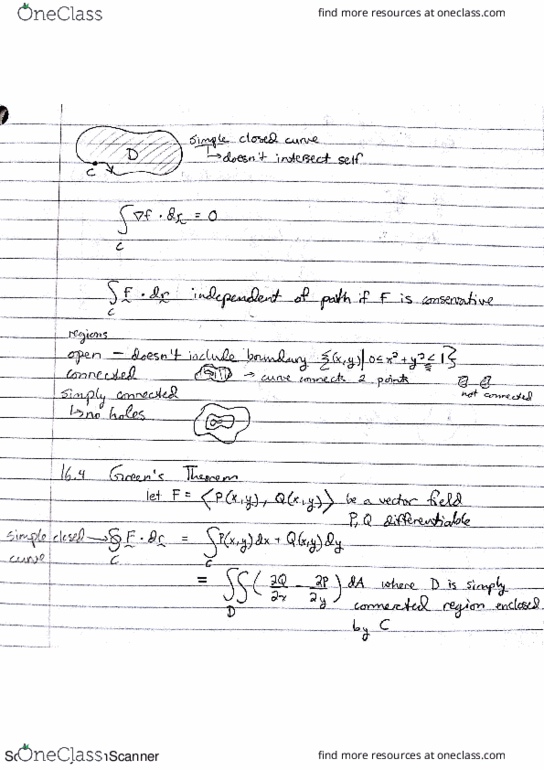 OneClass
find more resources at oneclass.com
D
C
simple closed curve
↳ doesn't intersect self
∫_C ∇f · dr = 0
∫_C F · dr independent of path if F is conservative
regions
open – doesn't include boundary {(x,y) | 0 ≤ x² + y² ≤ 1}
connected → curve connects 2 points
not connected
simply connected
↳ no holes
16.4 Green's Theorem
let F = ⟨P(x,y), Q(x,y)⟩ be a vector field
P, Q differentiable
simple closed curve → ∮_C F · dr = ∫_C P(x,y)dx + Q(x,y)dy
= ∬_D (∂Q/∂x - ∂P/∂y) dA where D is simply
connected region enclosed
by C
OneClass
Scanner
find more resources at oneclass.com